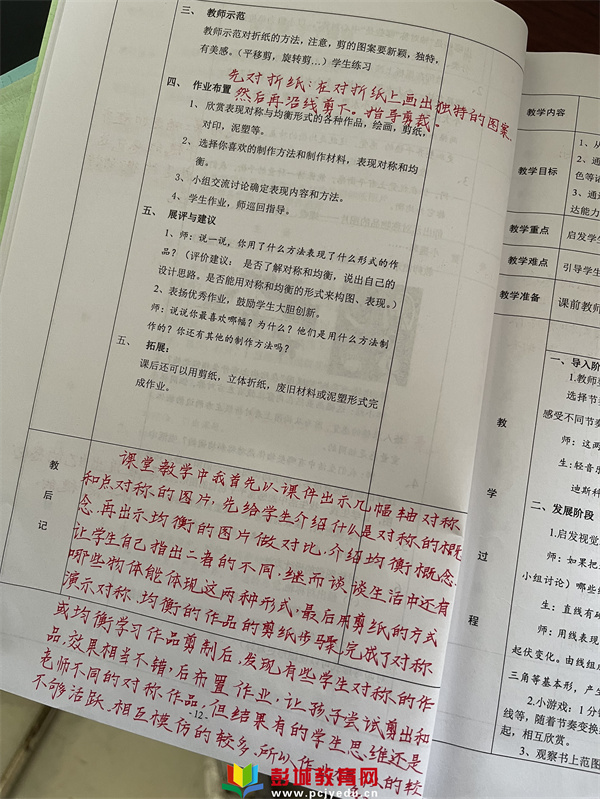 三、 教师示范
教师示范对折纸的方法，注意，剪的图案要新颖，独特，
有美感。（平移剪，旋转剪…）学生练习
先对折纸：在对折纸上画出独特的图案、
然后再沿线剪下。指导剪裁。
四、 作业布置
1、 欣赏表现对称与均衡形式的各种作品，绘画，剪纸，
对印，泥塑等。
2、 选择你喜欢的制作方法和制作材料，表现对称和均
衡。
3、 小组交流讨论确定表现内容和方法。
4、 学生作业，师巡回指导。
五、 展评与建议
1、师：说一说，你用了什么方法表现了什么形式的作
品？（评价建议： 是否了解对称和均衡，说出自己的
设计思路。是否能用对称和均衡的形式来构图、表现。）
2、表扬优秀作业，鼓励学生大胆创新。
师：说说你最喜欢哪幅？为什么？他们是用什么方法制
作的？你还有其他的制作方法吗？
五、 拓展：
课后还可以用剪纸，立体折纸，废旧材料或泥塑形式完
成作业。
教
后
记
课堂教学中我首先以课件出示几幅轴对称
和点对称的图片，先给学生介绍什么是对称的概
念，再出示均衡的图片做对比，介绍均衡概念。
让学生自己指出二者的不同，继而谈谈生活中还有
哪些物体能体现这两种形式，最后用剪纸的方式
演示对称、均衡的作品的剪纸步骤，完成了对称
或均衡学习作品剪制后，发现有些学生对称的作
品，效果相当不错，后布置作业，让孩子尝试剪出和
老师不同的对称作品，但结果有的学生思维还是
-12-
不够活跃、相互模仿的较多，所以作
的较
教学内容
教学目标
1、从
2、通
色等诸
3、通
达能力
教学重点
启发学生
教学难点
引导学生
教学准备
课前教师
教
学
过
程
一、导入阶
1.教师
选择节
感受不同节奏
师：这两
生：轻音乐
迪斯科
二、发展阶段
1.启发视觉
师：如果把
小组讨论）哪些线
生：直线有
师：用线表现
起伏变化。由线组
三角等基本形，产
2.小游戏：1 分钟
线等，随着节奏变换
起，相互欣赏。
3、观察书上范图
彭城教育网
www.pcjyedu.cn